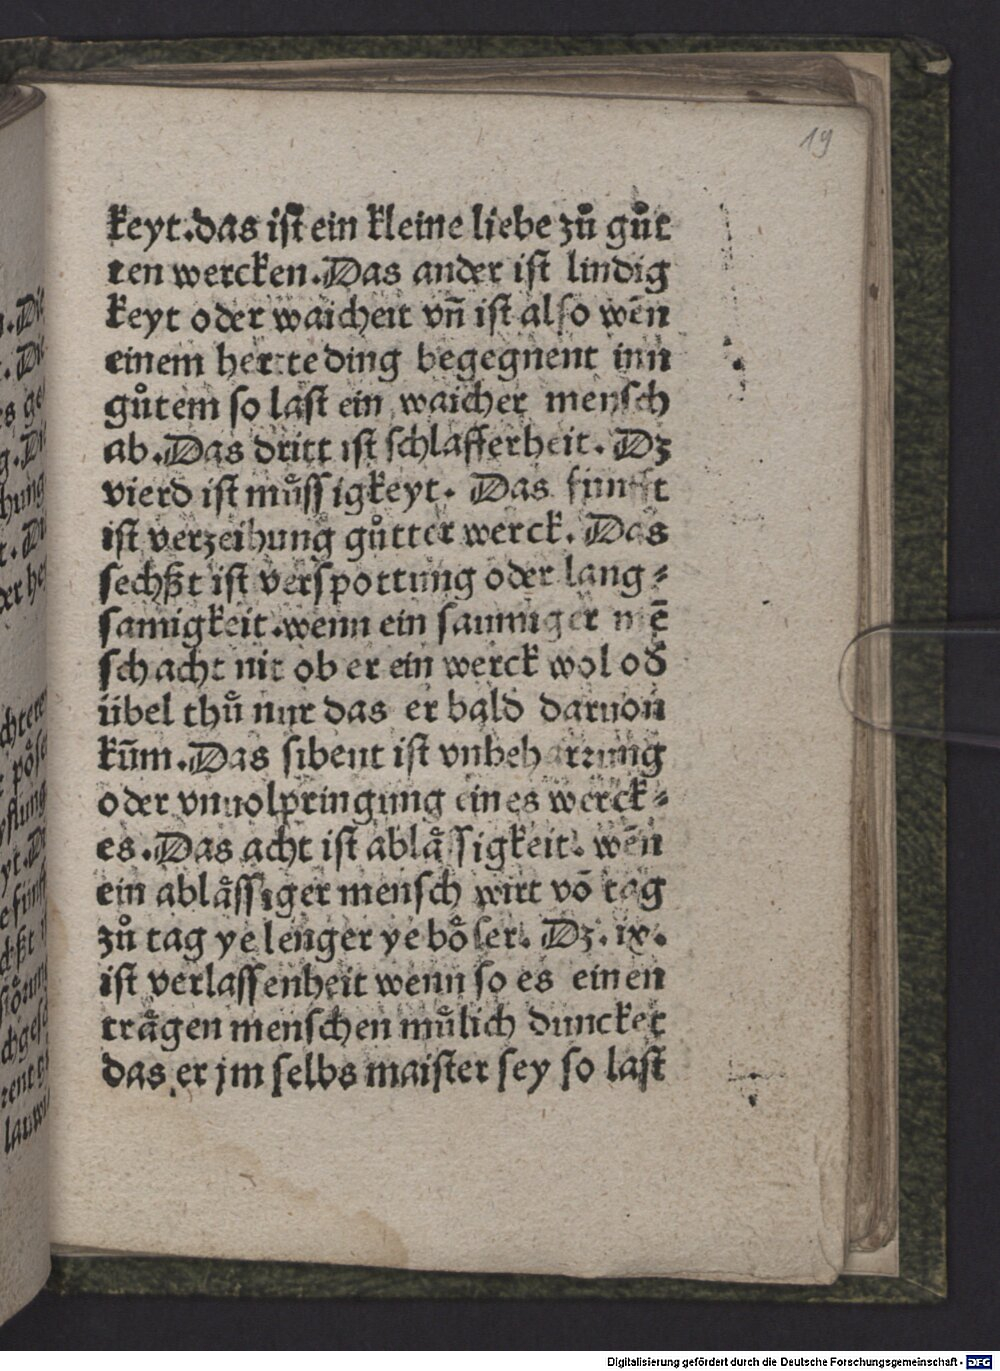 19
keyt.das ist ein kleine liebe zů gůt
ten wercken.Das ander ist lindig
keyt oder waicheit vñ ist also wēn
einem hertte ding begegnent inn
gůtem so last ein waicher mensch
ab.Das dritt ist schlafferheit. Dz
vierd ist můssigkeyt. Das funfft
ist verzeihung gůtter werck. Das
sechßt ist verspottung oder lang⸗
samigkeit.wenn ein saumiger mē
sch acht nit ob er ein werck wol od̄
übel thů nur das er bald daruon
kūm.Das sibent ist vnbeharrung
oder vnuolpringung eines werck⸗
es.Das acht ist ablåssigkeit. wēn
ein ablåssiger mensch wirt vō tag
zů tag ye lenger ye bo̊ser. Dz. ix.
ist verlassenheit wenn so es einen
trågen menschen můlich duncket
das er jm selbs maister sey so last
Digitalisierung gefördert durch die Deutsche Forschungsgemeinschaft - DFG